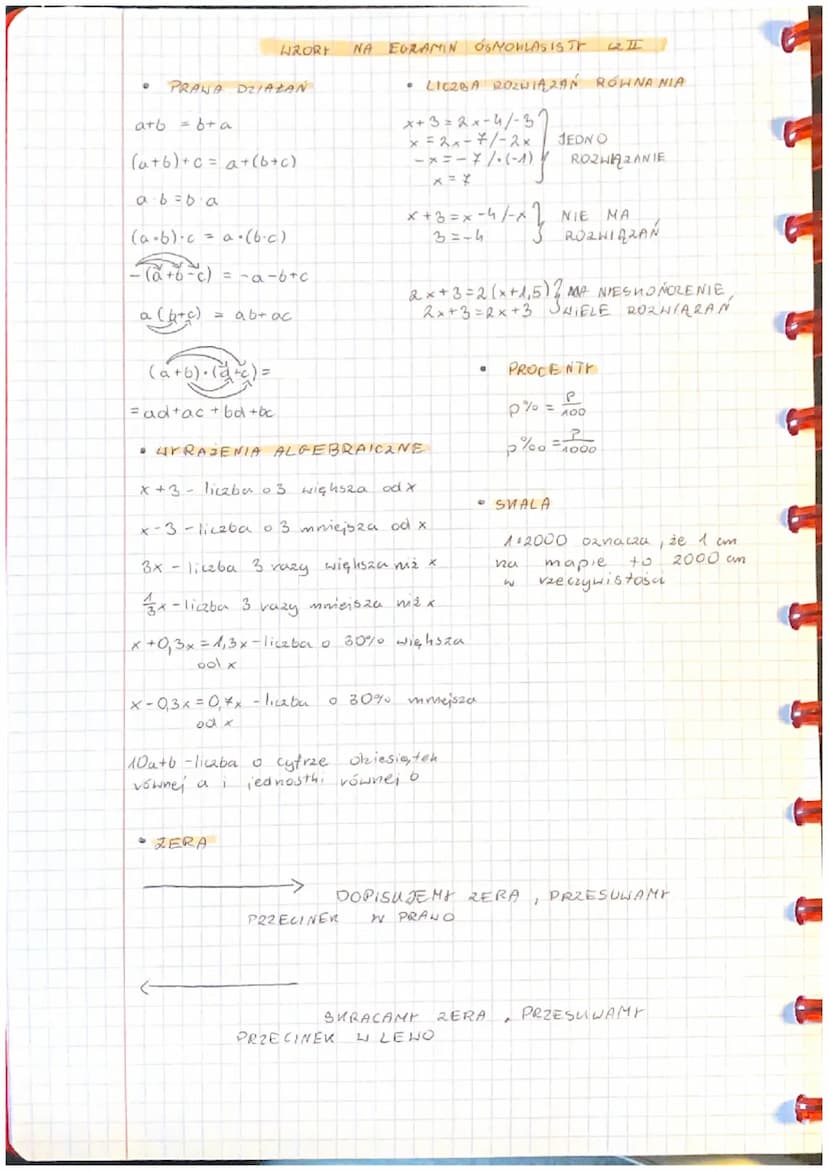 WZORY NA EGZAMIN ÓSMOKLASISTY CZ II
• PRAWA DZIAŁAŃ
a+b = b+a
(a+b)+c = a+(b+c)
a·b = b·a
(a·b)·c = a·(b·c)
-(a+b-c) = -a-b+c
a(b+c) = ab+ac
(a+b)·(d+c)=
=ad+ac+bd+bc
• WYRAŻENIA ALGEBRAICZNE
x+3 - liczba o 3 większa od x
x-3 - liczba o 3 mniejsza od x
3x - liczba 3 razy większa niż x
1/3x - liczba 3 razy mniejsza niż x
x+0,3x=1,3x - liczba o 30% większa
od x
x-0,3x=0,7x - liczba o 30% mniejsza
od x
10a+b - liczba o cyfrze dziesiątek
równej a i jednostki równej b
• LICZBA ROZWIĄZAŃ RÓWNANIA
x+3=2x-4/-3
x=2x-7/-2x
-x=-7/·(-1)
x=7
JEDNO
ROZWIĄZANIE
x+3=x-4/-x
3=-4
NIE MA
ROZWIĄZAŃ
2x+3=2(x+1,5) MA NIESKOŃCZENIE
2x+3=2x+3 WIELE ROZWIĄZAŃ
• PROCENTY
p% = p/100
p‰ = p/1000
• SKALA
1:2000 oznacza, że 1 cm
na mapie to 2000 cm
w rzeczywistości
• ZERA
DOPISUJEMY ZERA, PRZESUWAMY
PRZECINEK W PRAWO
SKRACAMY ZERA, PRZESUWAMY
PRZECINEK W LEWO